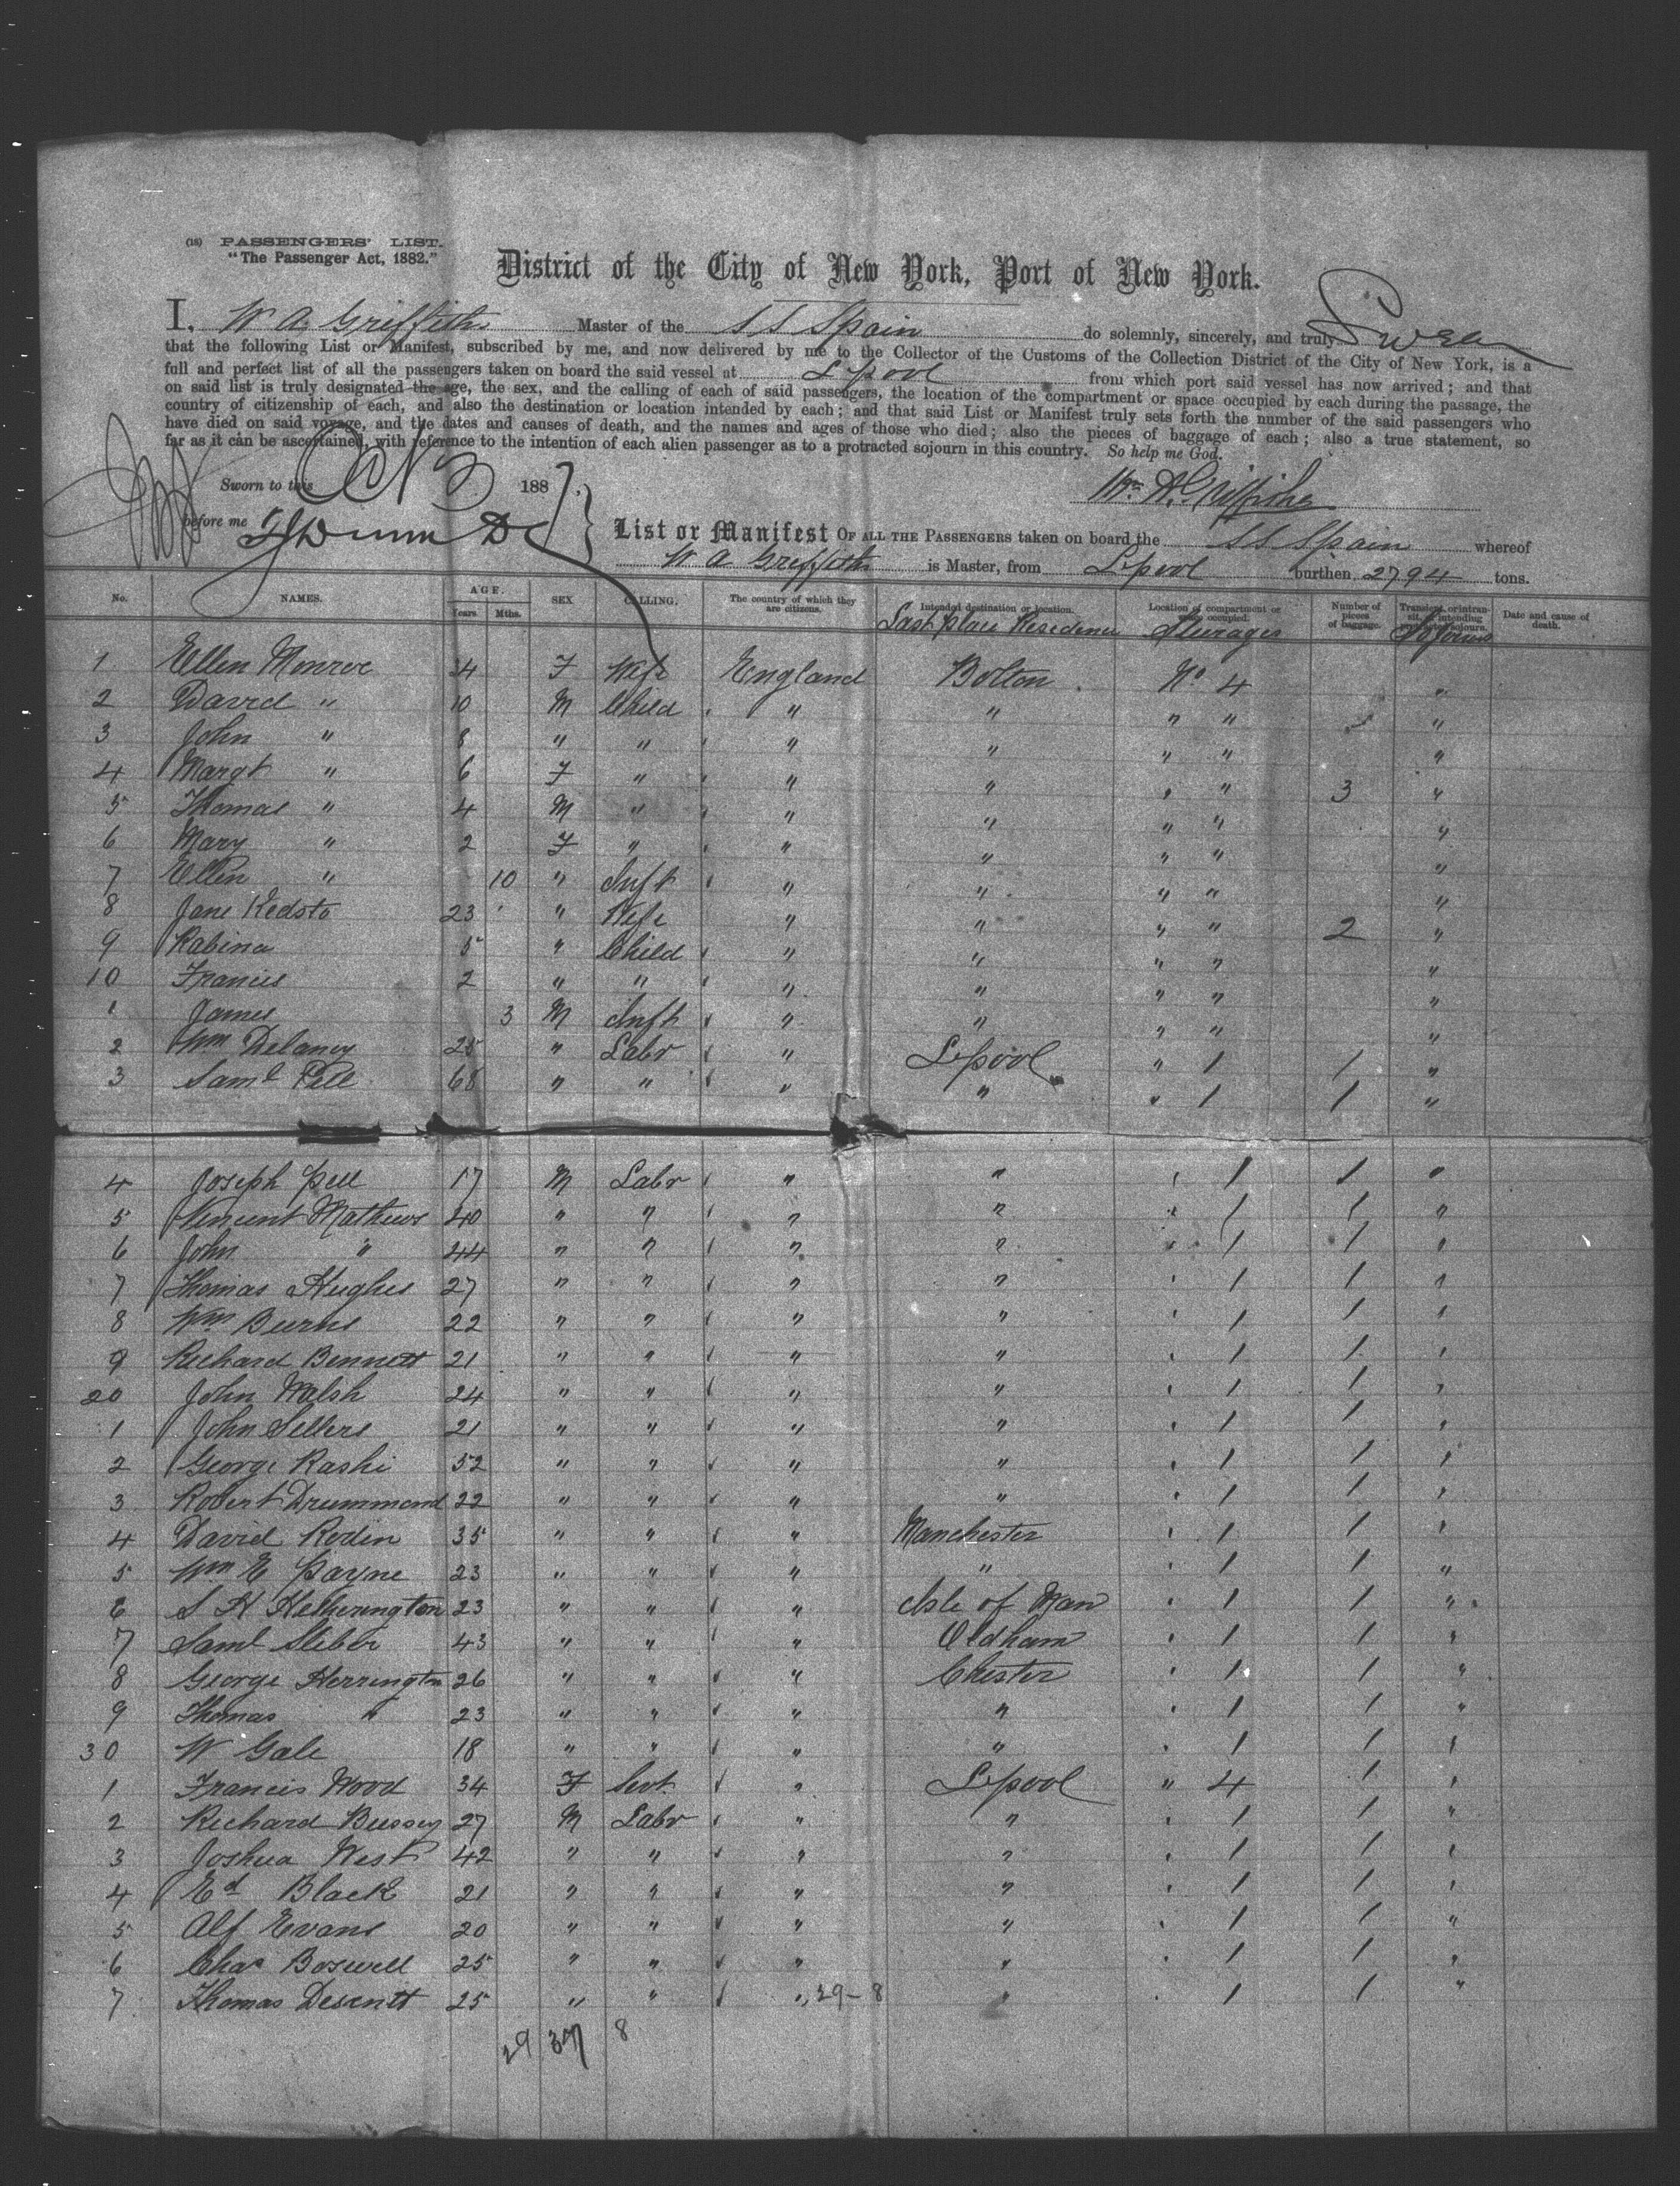 (18) PASSENGERS' LIST.
"The Passenger Act, 1882."
District of the City of New York, Port of New York.
I, W A Griffith Master of the S S Spain do solemnly, sincerely, and truly Swear
that the following List or Manifest, subscribed by me, and now delivered by me to the Collector of the Customs of the Collection District of the City of New York, is a
full and perfect list of all the passengers taken on board the said vessel at L'pool from which port said vessel has now arrived; and that
on said list is truly designated the age, the sex, and the calling of each of said passengers, the location of the compartment or space occupied by each during the passage, the
country of citizenship of each, and also the destination or location intended by each; and that said List or Manifest truly sets forth the number of the said passengers who
have died on said voyage, and the dates and causes of death, and the names and ages of those who died; also the pieces of baggage of each; also a true statement, so
far as it can be ascertained, with reference to the intention of each alien passenger as to a protracted sojourn in this country. So help me God.
Sworn to this 188
Wm A Griffiths
before me
List or Manifest OF ALL THE PASSENGERS taken on board the S S Spain whereof
W A Griffith is Master, from L'pool burthen 2794 tons.
No. NAMES. AGE. Years Mths. SEX CALLING. The country of which they are citizens. Intended destination or location. Last place Residence Location of compartment or space occupied. Steerages Number of pieces of baggage. Transient, or in transit, or intending protracted sojourn. Date and cause of death.
1 Ellen Monroe 34 F Wife England Bolton No 4 "
2 David " 10 M Child " " " " "
3 John " 8 " " " " " " "
4 Margt " 6 F " " " " " 3 "
5 Thomas " 4 M " " " " " "
6 Mary " 2 F " " " " " "
7 Ellen " 10 " Inft " " " " "
8 Jane Kedsto 23 " Wife " " " " 2 "
9 Robina 5 " Child " " " " "
10 Francis 2 " " " " " " "
1 James 3 M Inft " " " " "
2 Wm Delaney 25 " Labr " L'pool " 1 1 "
3 Saml Pell 68 " " " " " 1 1 "
4 Joseph Pell 17 M Labr " " " 1 1 "
5 Vincent Mathews 40 " " " " " 1 1 "
6 John " 44 " " " " " 1 1 "
7 Thomas Hughes 27 " " " " " 1 1 "
8 Wm Burns 22 " " " " " 1 1 "
9 Richard Bennett 21 " " " " " 1 1 "
20 John Walsh 24 " " " " " 1 1 "
1 John Sellers 21 " " " " " 1 1 "
2 George Rashi 52 " " " " " 1 1 "
3 Robert Drummond 22 " " " " " 1 1 "
4 David Rodin 35 " " " Manchester " 1 1 "
5 Wm E Payne 23 " " " " " 1 1 "
6 S H Hetherington 23 " " " Isle of Man " 1 1 "
7 Saml Sleber 43 " " " Oldham " 1 1 "
8 George Herrington 26 " " " Chester " 1 1 "
9 Thomas " 23 " " " " " 1 1 "
30 W Gale 18 " " " " " 1 1 "
1 Francis Wood 34 F Servt " L'pool " 4 1 "
2 Richard Bussey 27 M Labr " " " 1 1 "
3 Joshua West 42 " " " " " 1 1 "
4 Ed Black 21 " " " " " 1 1 "
5 Alf Evans 20 " " " " " 1 1 "
6 Chas Boswell 25 " " " " " 1 1 "
7 Thomas Desentt 25 " " " 29-8 " " 1 1 "
29 37 8